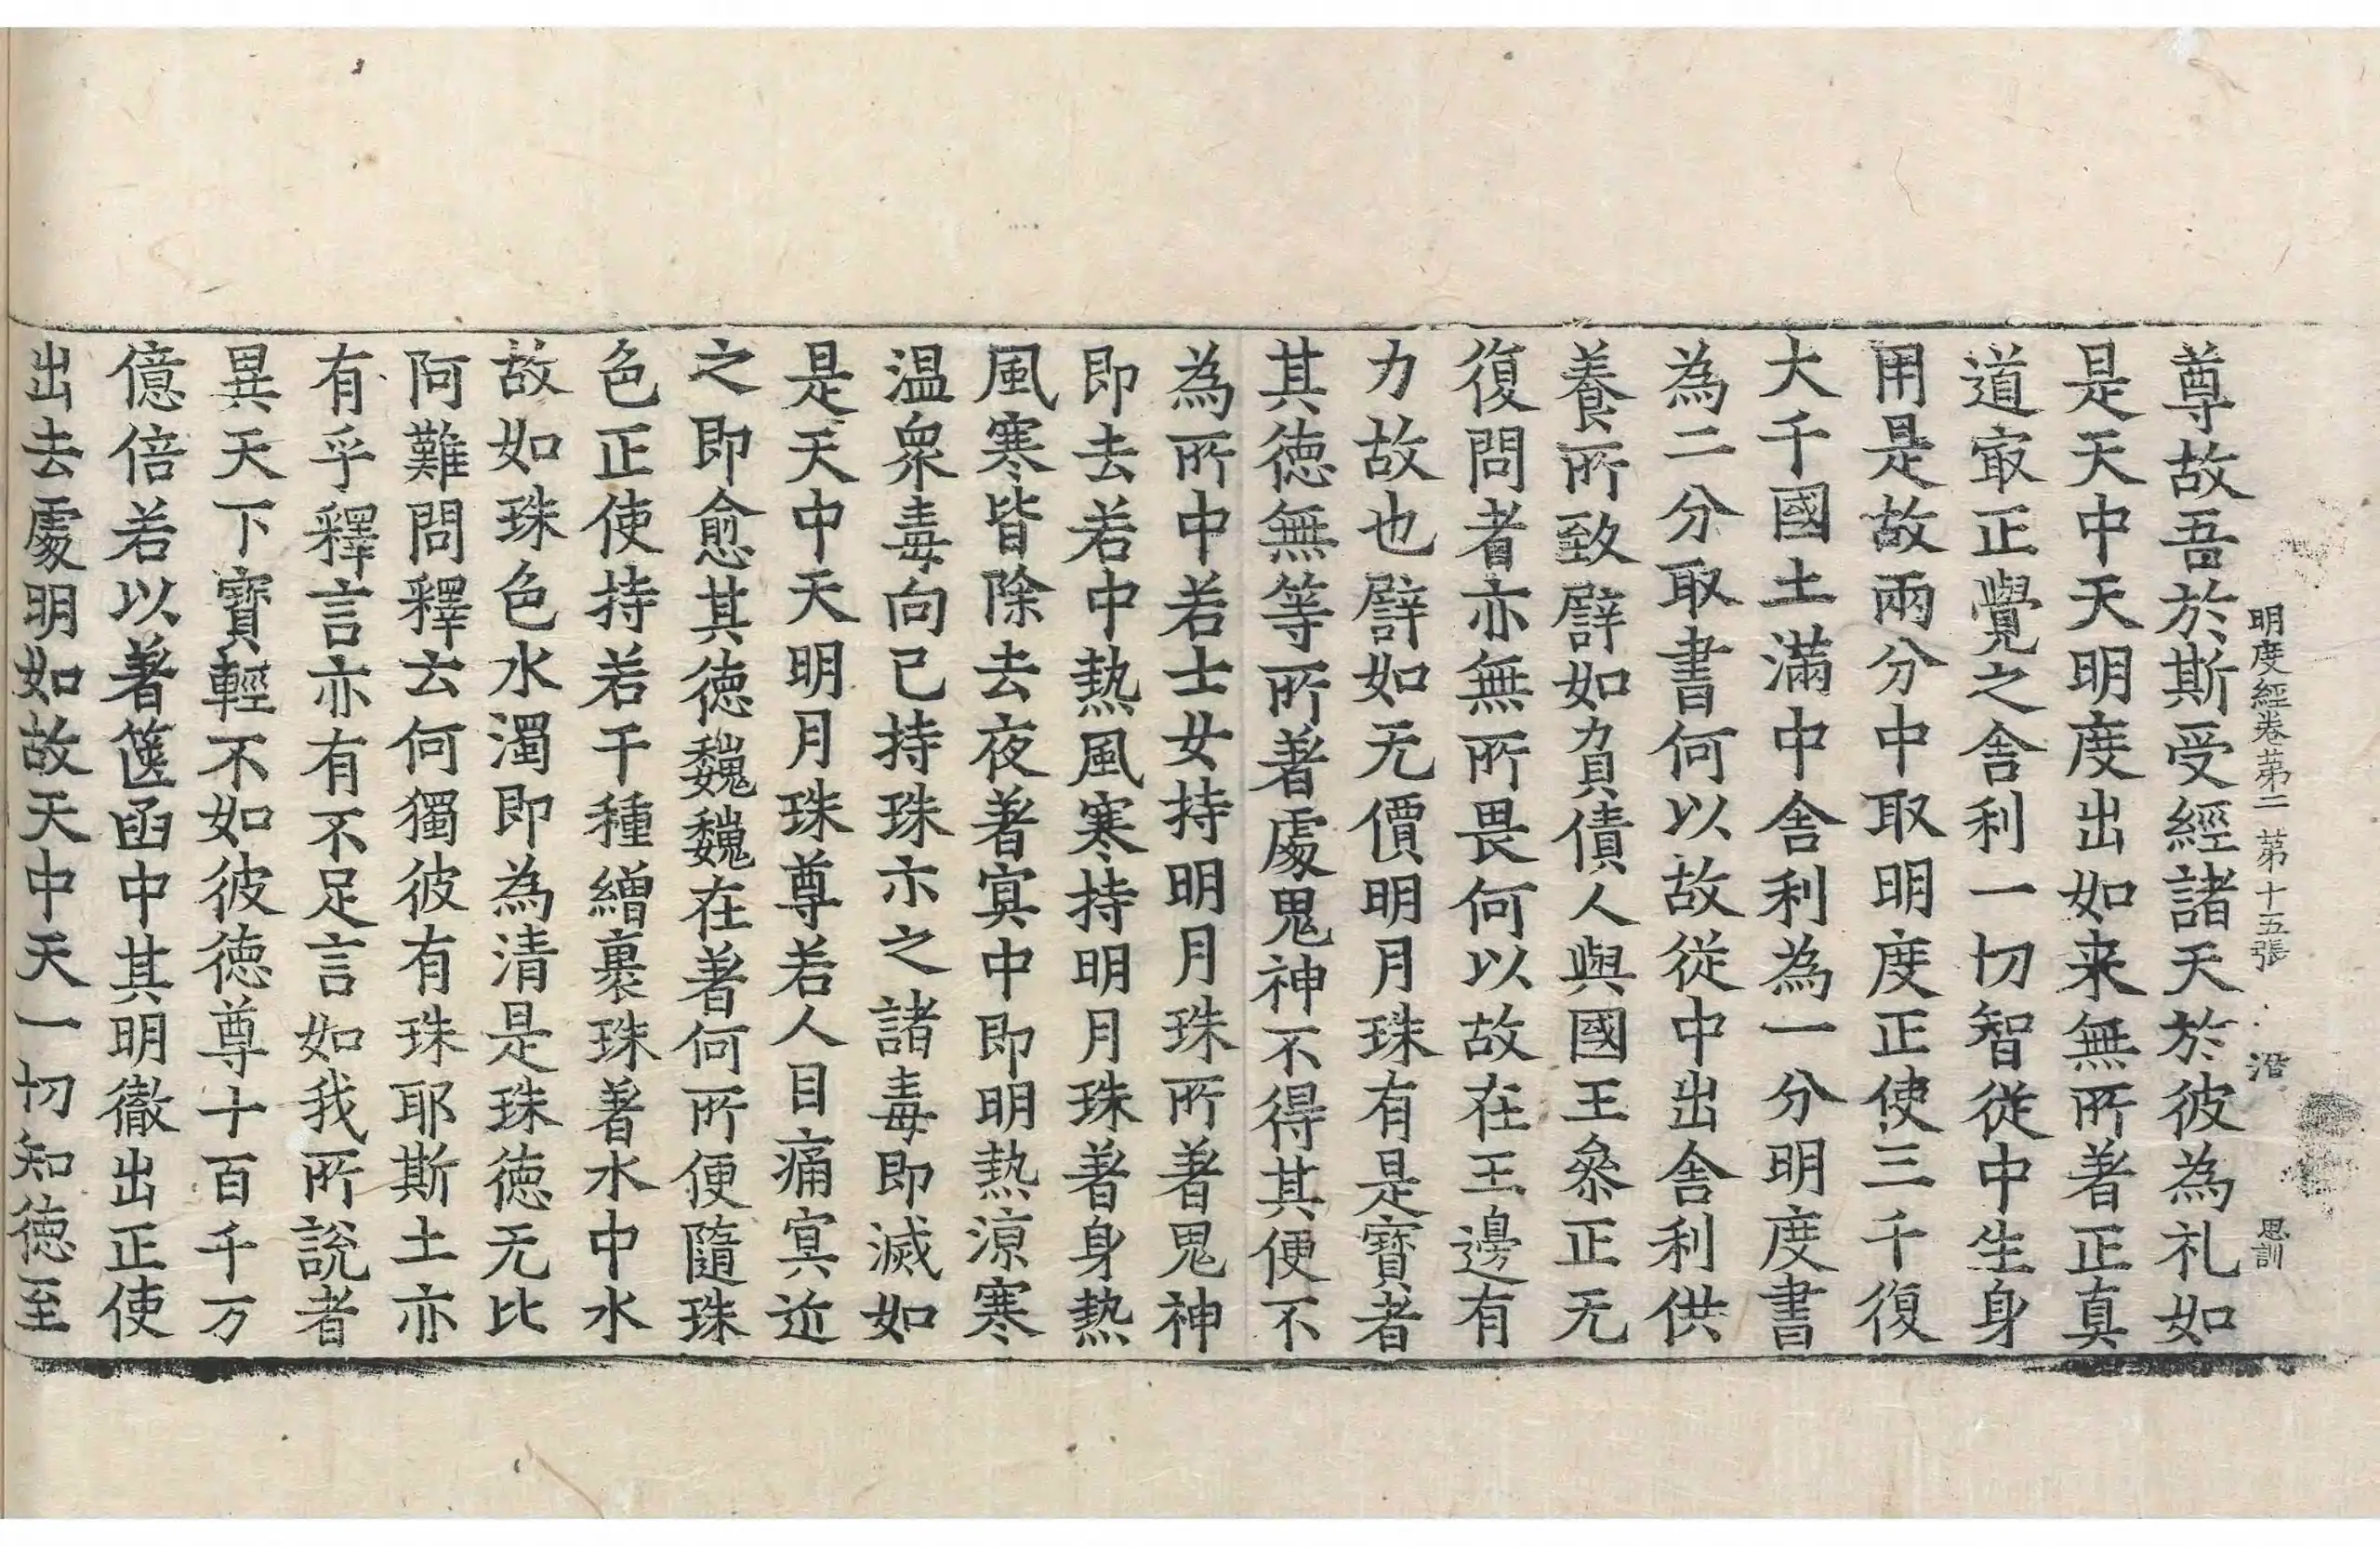 明度經卷第二 第十五張 潛 思訓
尊故吾於斯受經諸天於彼為礼如
是天中天明度出如来無所著正真
道㝡正覺之舍利一切智從中生身
用是故兩分中取明度正使三千復
大千國土滿中舍利為一分明度書
為二分取書何以故從中出舍利供
養所致譬如負債人與國王叅正无
復問者亦無所畏何以故在王邊有
力故也譬如无價明月珠有是寶者
其德無等所著處鬼神不得其便不
為所中若士女持明月珠所著鬼神
即去若中熱風寒持明月珠著身熱
風寒皆除去夜著冥中即明熱涼寒
温衆毒向己持珠示之諸毒即滅如
是天中天明月珠尊若人目痛冥近
之即愈其德巍巍在著何所便隨珠
色正使持若干種繒裹珠著水中水
故如珠色水濁即為清是珠德无比
阿難問釋云何獨彼有珠耶斯土亦
有乎釋言亦有不足言如我所說者
異天下寶輕不如彼德尊十百千万
億倍若以著篋函中其明徹出正使
出去處明如故天中天一切知德至